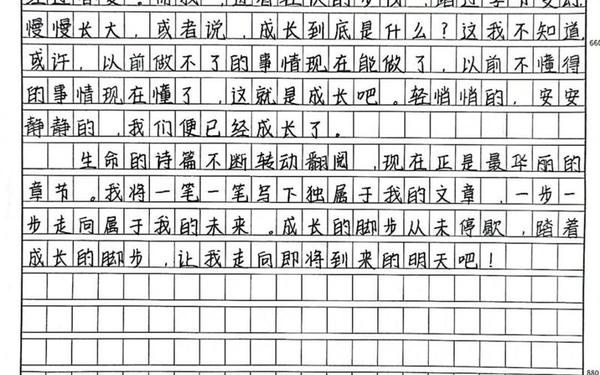 慢慢长大，或者说，成长到底是什么？这我不知道，
或许，以前做不了的事情现在能做了，以前不懂得
的事情现在懂了，这就是成长吧。轻悄悄的，安安
静静的，我们便已经成长了。
生命的诗篇不断转动翻阅，现在正是最华丽的
章节。我将一笔一笔写下独属于我的文章，一步一
步走向属于我的未来。成长的脚步从未停歇，踏着
成长的脚步，让我走向即将到来的明天吧！
660
880